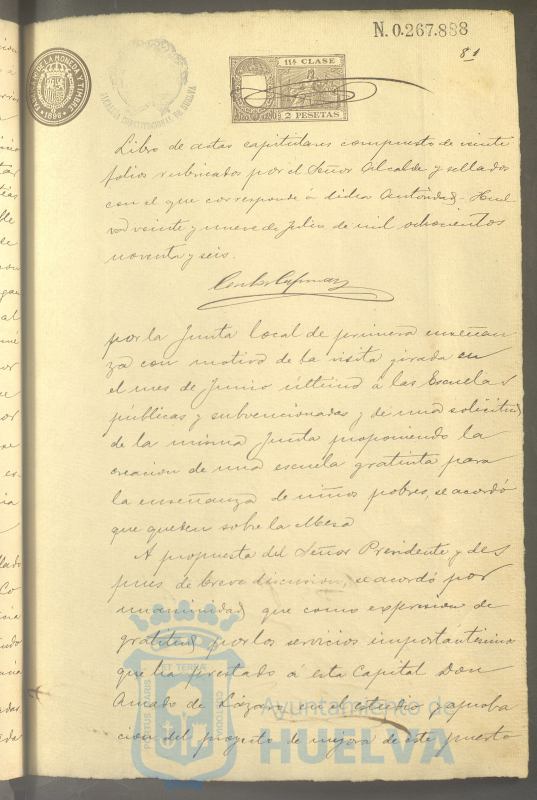 N.0.267.888
81
11ª CLASE
2 PESETAS
FÁBRICA NACIONAL DE LA MONEDA Y TIMBRE
1896
ALCALDIA CONSTITUCIONAL DE HUELVA
Libro de actas capitulares compuesto de veinte
folios rubricados por el Señor Alcalde y sellados
con el que corresponde á dicha Autoridad. Huel
va veinte y nueve de Julio de mil ochocientos
noventa y seis.
por la Junta local de primera enseñan
za con motivo de la visita girada en
el mes de Junio último á las Escuelas
públicas y subvencionadas y de una solicitud
de la misma Junta proponiendo la
creacion de una escuela gratuita para
la enseñanza de niños pobres, se acordó
que queden sobre la Mesa
A propuesta del Señor Presidente y des
pues de breve discusion, se acordó por
unanimidad que como expresion de
gratitud por los servicios importantisimos
que ha prestado á esta Capital Don
Amado de Lázaro, en el estudio y aproba
cion del proyecto de mejora de este puerto
PORTUS MARIS ET TERRAE CUSTODIA
Ayuntamiento de
HUELVA